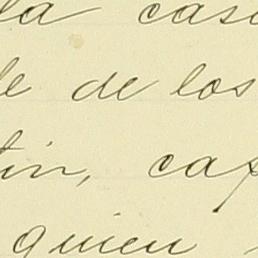 la casa
le de los
tin, cap
quien